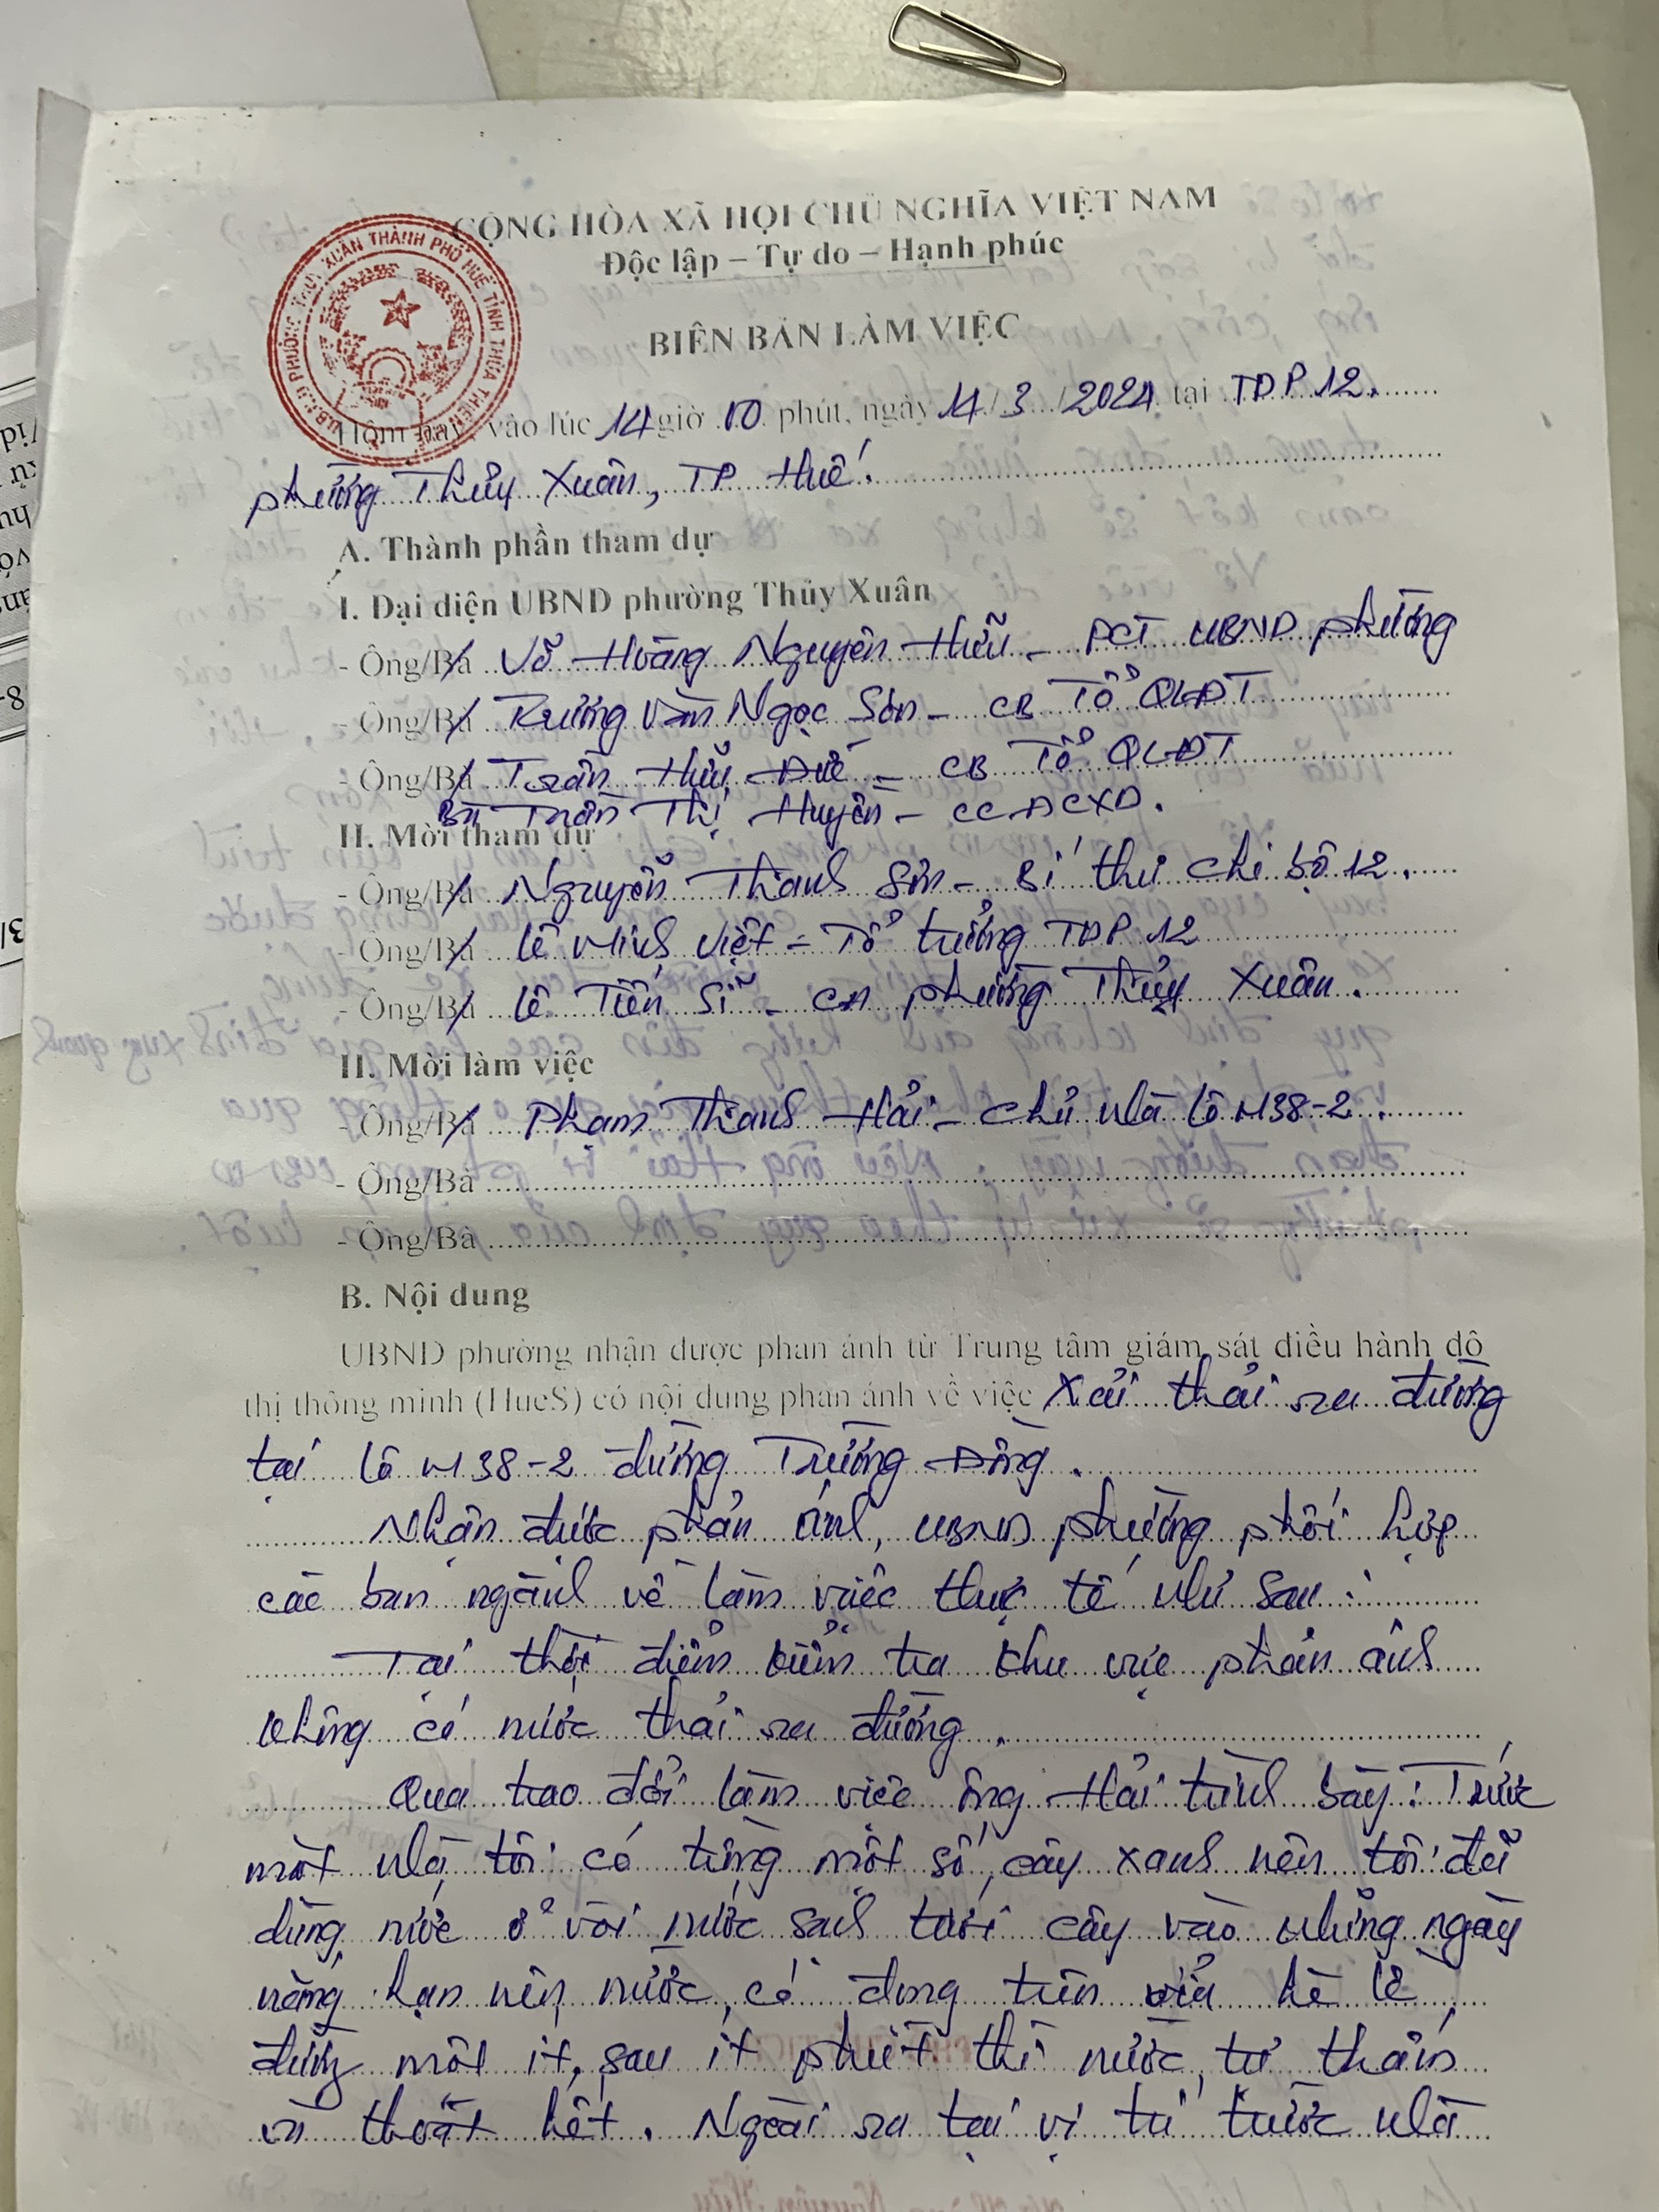 CỘNG HÒA XÃ HỘI CHỦ NGHĨA VIỆT NAM
Độc lập – Tự do – Hạnh phúc
U.B.N.D PHƯỜNG THỦY XUÂN THÀNH PHỐ HUẾ TỈNH THỪA THIÊN
BIÊN BẢN LÀM VIỆC
Hôm nay, vào lúc 14 giờ 00 phút, ngày 14/3/2024 tại TDP 12.
phường Thủy Xuân, TP Huế.
A. Thành phần tham dự
I. Đại diện UBND phường Thủy Xuân
- Ông/Bà Võ Hoàng Nguyên Hữu - PCT UBND phường
- Ông/Bà Trương Văn Ngọc Sơn - CB Tổ QLĐT
- Ông/Bà Trần Hữu Đức - CB Tổ QLĐT
Bà Trần Thị Huyền - CC ĐCXD.
II. Mời tham dự
- Ông/Bà Nguyễn Thanh Sơn - Bí thư chi bộ 12.
- Ông/Bà Lê Minh Việt - Tổ trưởng TDP 12
- Ông/Bà Lê Tiến Sĩ - CA phường Thủy Xuân.
II. Mời làm việc
- Ông/Bà Phạm Thanh Hải - Chủ nhà lô M38-2.
- Ông/Bà
- Ông/Bà
B. Nội dung
UBND phường nhận được phản ánh từ Trung tâm giám sát điều hành đô
thị thông minh (HueS) có nội dung phản ánh về việc xải thải ra đường
tại lô M38-2 đường Trường Đồng.
Nhận được phản ánh, UBND phường phối hợp
các ban ngành về làm việc thực tế như sau:
Tại thời điểm kiểm tra khu vực phản ánh
không có nước thải ra đường.
Qua trao đổi làm việc ông Hải trình bày: Trước
mặt nhà tôi có trồng một số cây xanh nên tôi đã
dùng nước ở vòi nước sạch tưới cây vào những ngày
nắng hạn nên nước có đọng trên vỉa hè lề
đường một ít, sau ít phút thì nước tự thấm
và thoát hết. Ngoài ra tại vị trí trước nhà